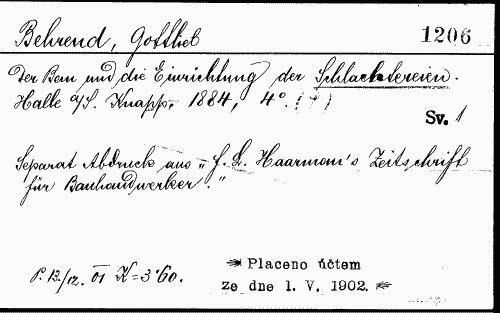 Behrend, Gotthelf 1206
Der Bau und die Einrichtung der Schlachtereien.
Halle a/S. Knapp, 1884, 4°.
Sv. 1
Separat Abdruck aus „F. L. Haarmann's Zeitschrift
für Bauhandwerker."
P. 13./12. 01 K=3·60.
Placeno účtem
ze dne 1. V. 1902.